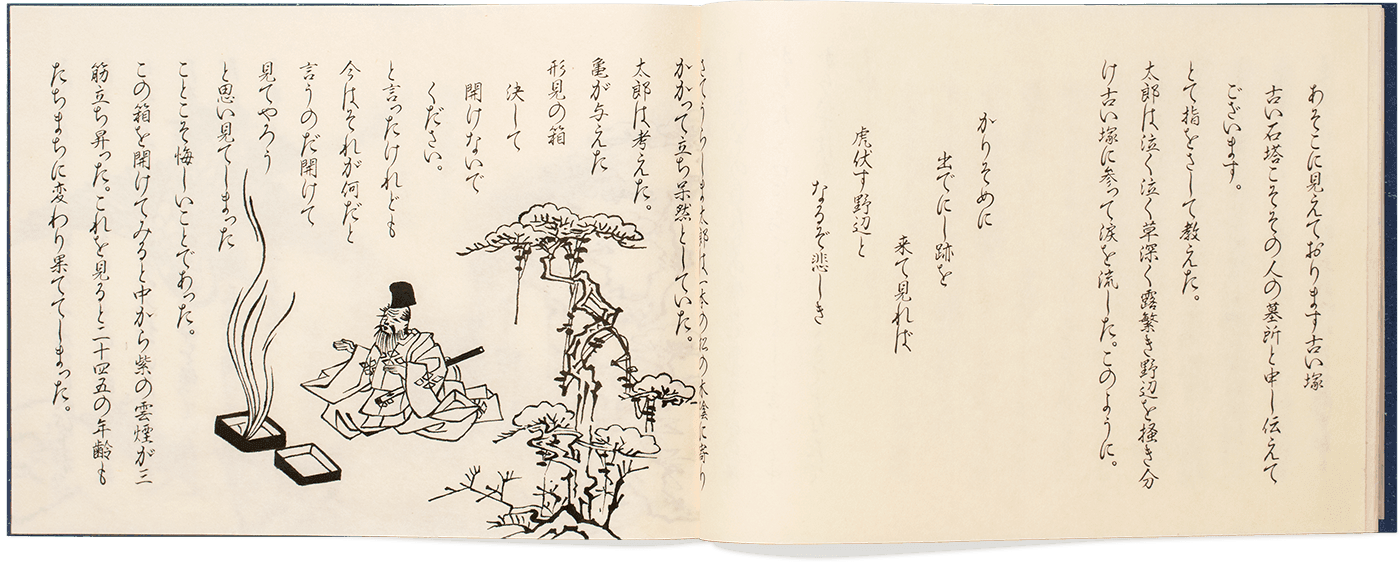 あそこに見えております古い塚
古い石塔こそその人の墓所と申し伝えて
ございます。
とて指をさして教えた。
太郎は泣く泣く草深く露繁き野辺を掻き分
け古い塚に参って涙を流した。このように。
かりそめに
出でにし跡を
来て見れば
虎伏す野辺と
なるぞ悲しき
さてうらしま太郎は一本の松の木蔭に寄り
かかって立ち呆然としていた。
太郎は考えた。
亀が与えた
形見の箱
決して
開けないで
ください。
と言ったけれども
今はそれが何だと
言うのだ開けて
見てやろう
と思い見てしまった
ことこそ悔しいことであった。
この箱を開けてみると中から紫の雲煙が三
筋立ち昇った。これを見ると二十四五の年齢も
たちまちに変わり果ててしまった。